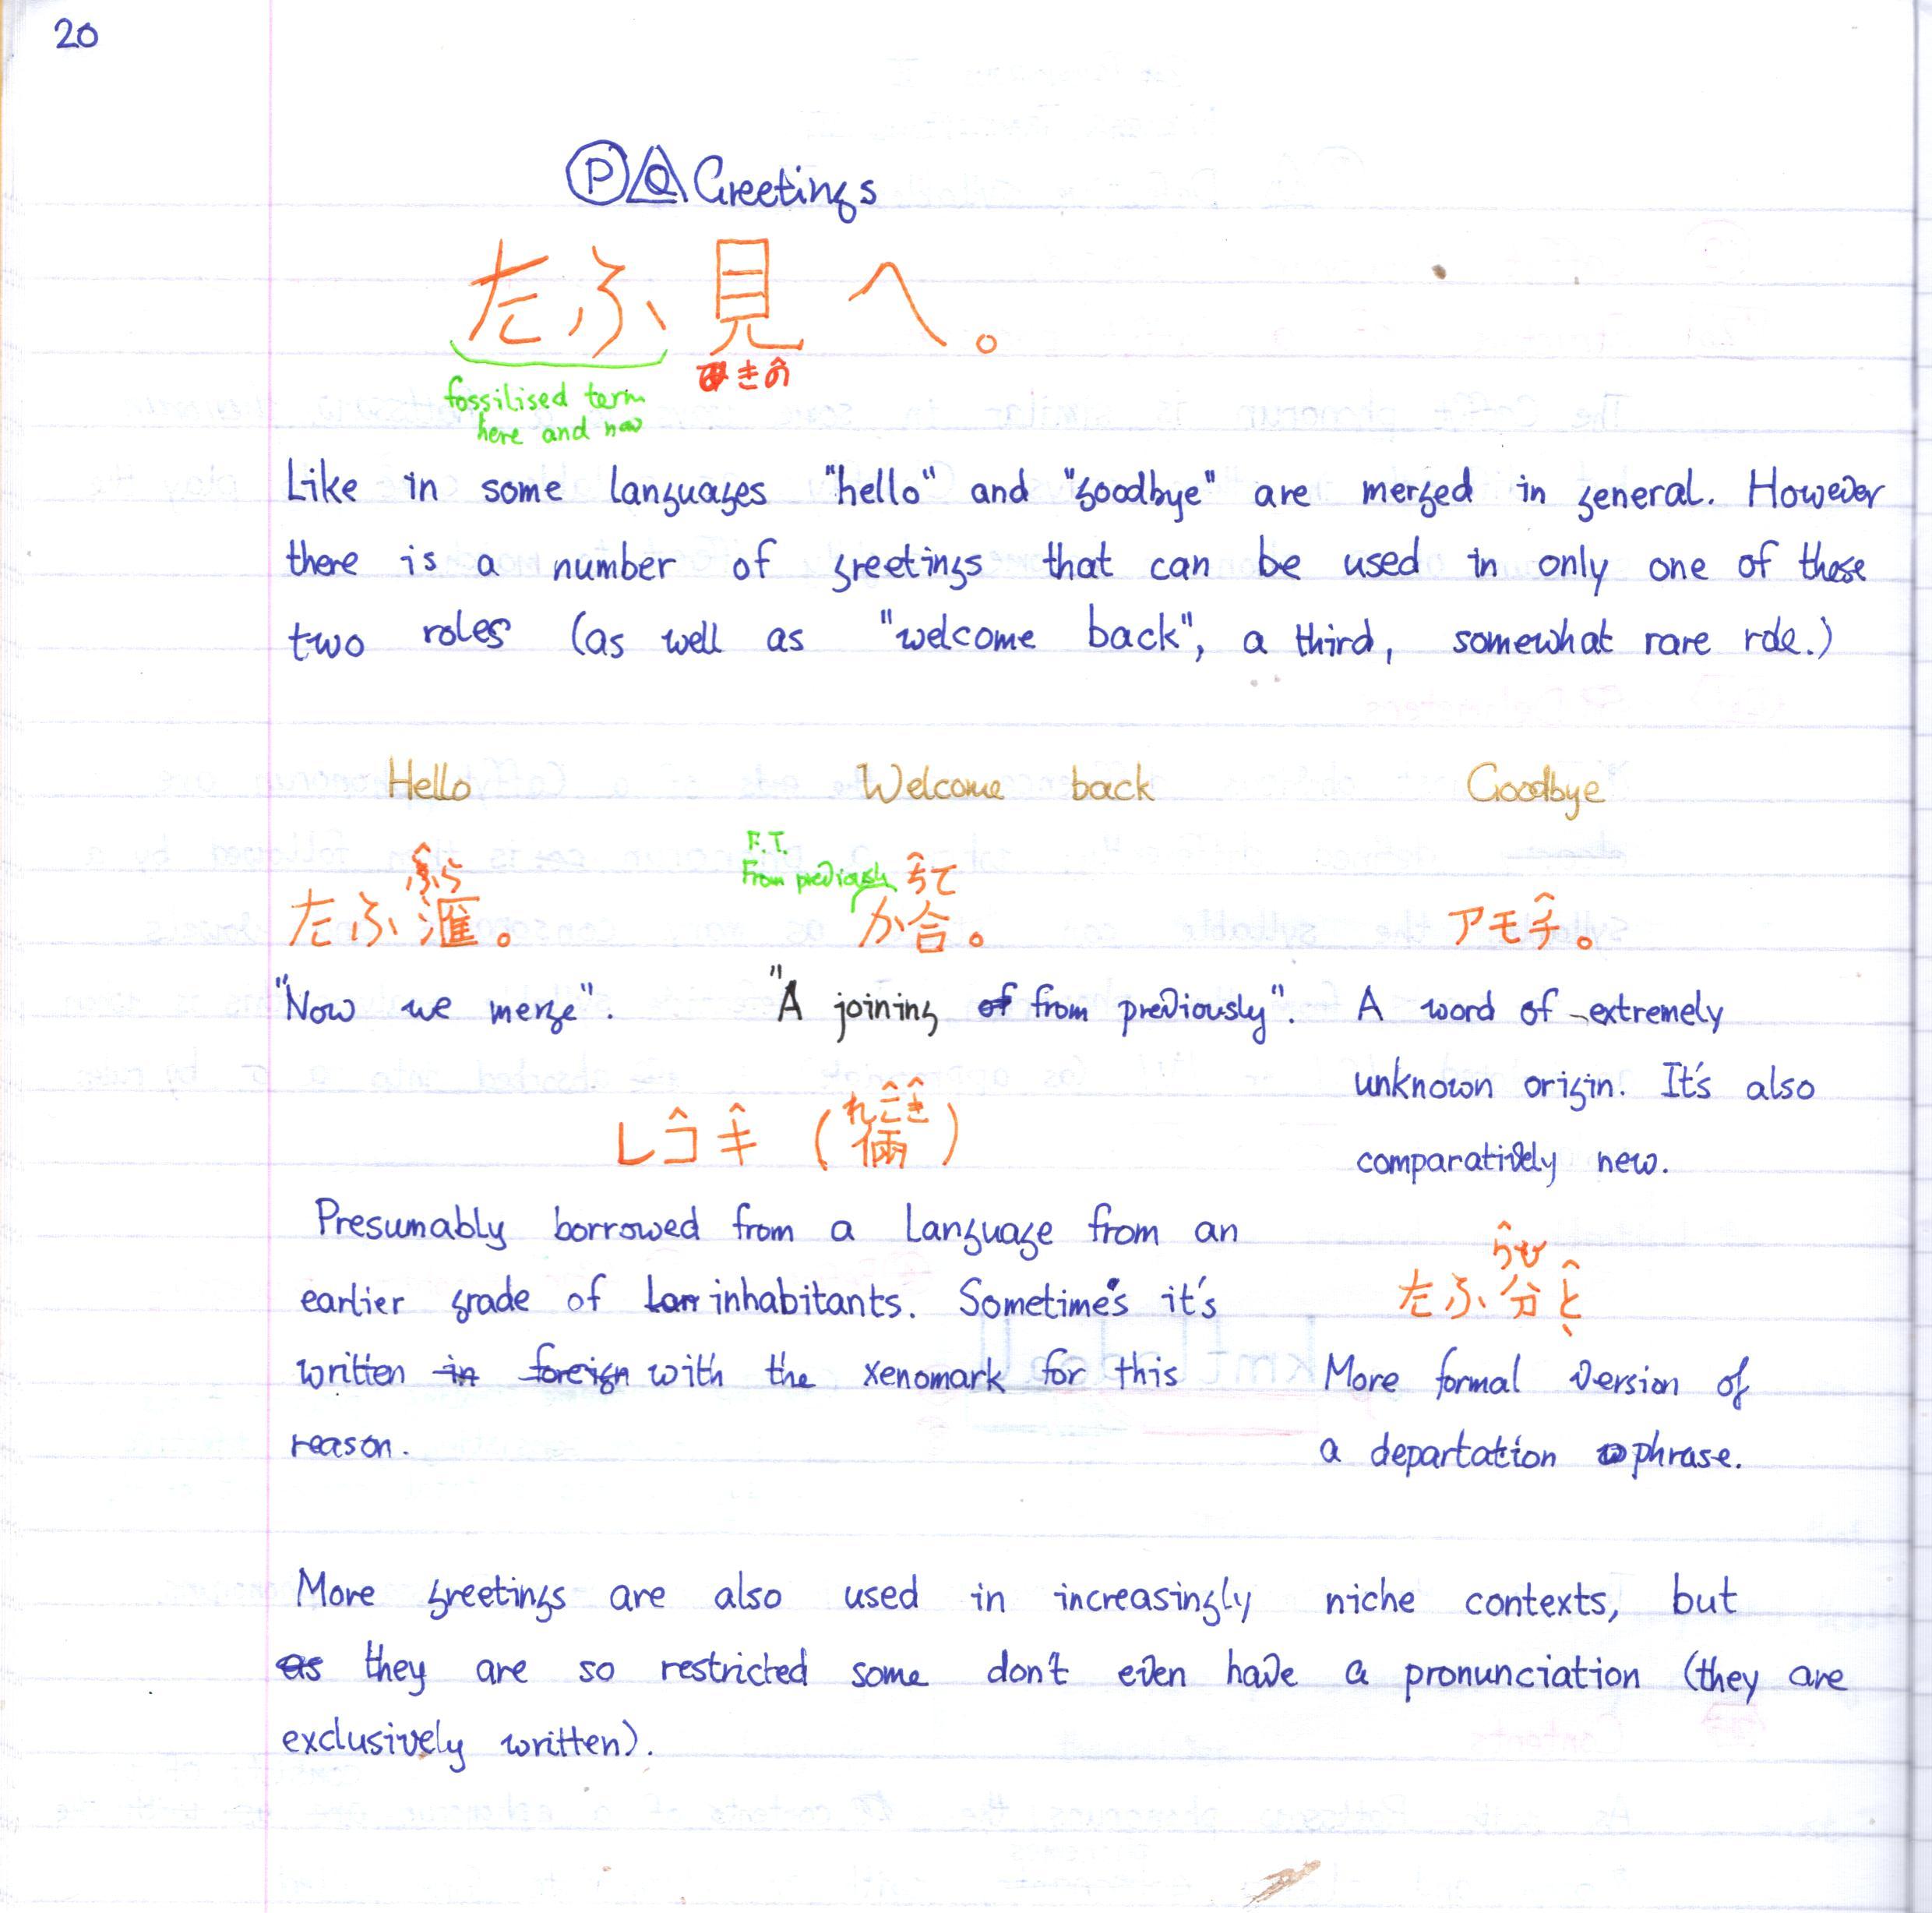 20
Ⓟ Q Greetings
たふ見へ。
きの̂
fossilised term
here and now
Like in some languages "hello" and "goodbye" are merged in general. However
there is a number of greetings that can be used in only one of these
two roles (as well as "welcome back", a third, somewhat rare role.)
Hello
ふ̂ら
たふ滙。
"Now we merge".
Welcome back
F.T.
From previously
ち̂て
か合。
"A joining of from previously".
レコ̂キ̂ (倆)
れこ̂き̂
Presumably borrowed from a language from an
earlier grade of lan inhabitants. Sometimes it's
written in foreign with the xenomark for this
reason.
Goodbye
アモチ̂。
A word of extremely
unknown origin. It's also
comparatively new.
う̂ひ
たふ分と̂
More formal version of
a departation phrase.
More greetings are also used in increasingly niche contexts, but
as they are so restricted some don't even have a pronunciation (they are
exclusively written).